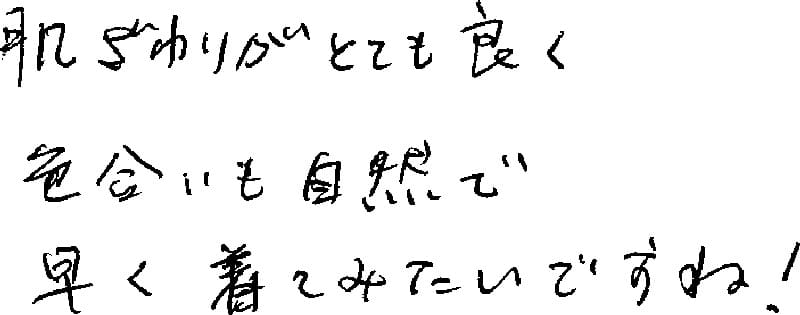 肌ざわりがとても良く
色合いも自然で
早く着てみたいですね!